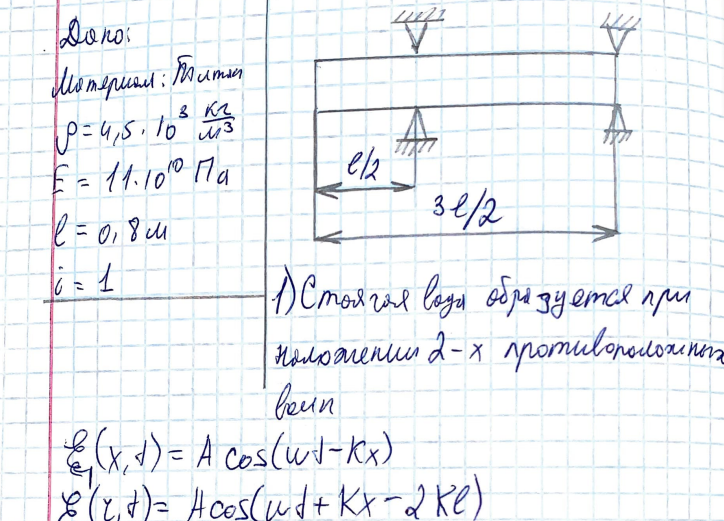 Дано:
Материал: Титан
ρ = 4,5 · 10³ кг/м³
E = 11 · 10¹⁰ Па
l = 0,8 м
i = 1
l/2
3l/2
1) Стоячая волна образуется при
наложении 2-х противоположных
волн
ξ₁(x,t) = A cos(ωt − Kx)
ξ(x,t) = A cos(ωt + Kx − 2Kl)